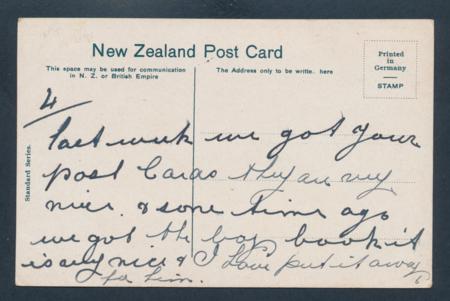 New Zealand Post Card
This space may be used for communication
in N. Z. or British Empire
The Address only to be writte. here
Printed
in
Germany
STAMP
Standard Series.
4/
last week we got your
post Cards they are very
nice. & some time ago
we got the boy book it
is very nice & I have put it away
for him.